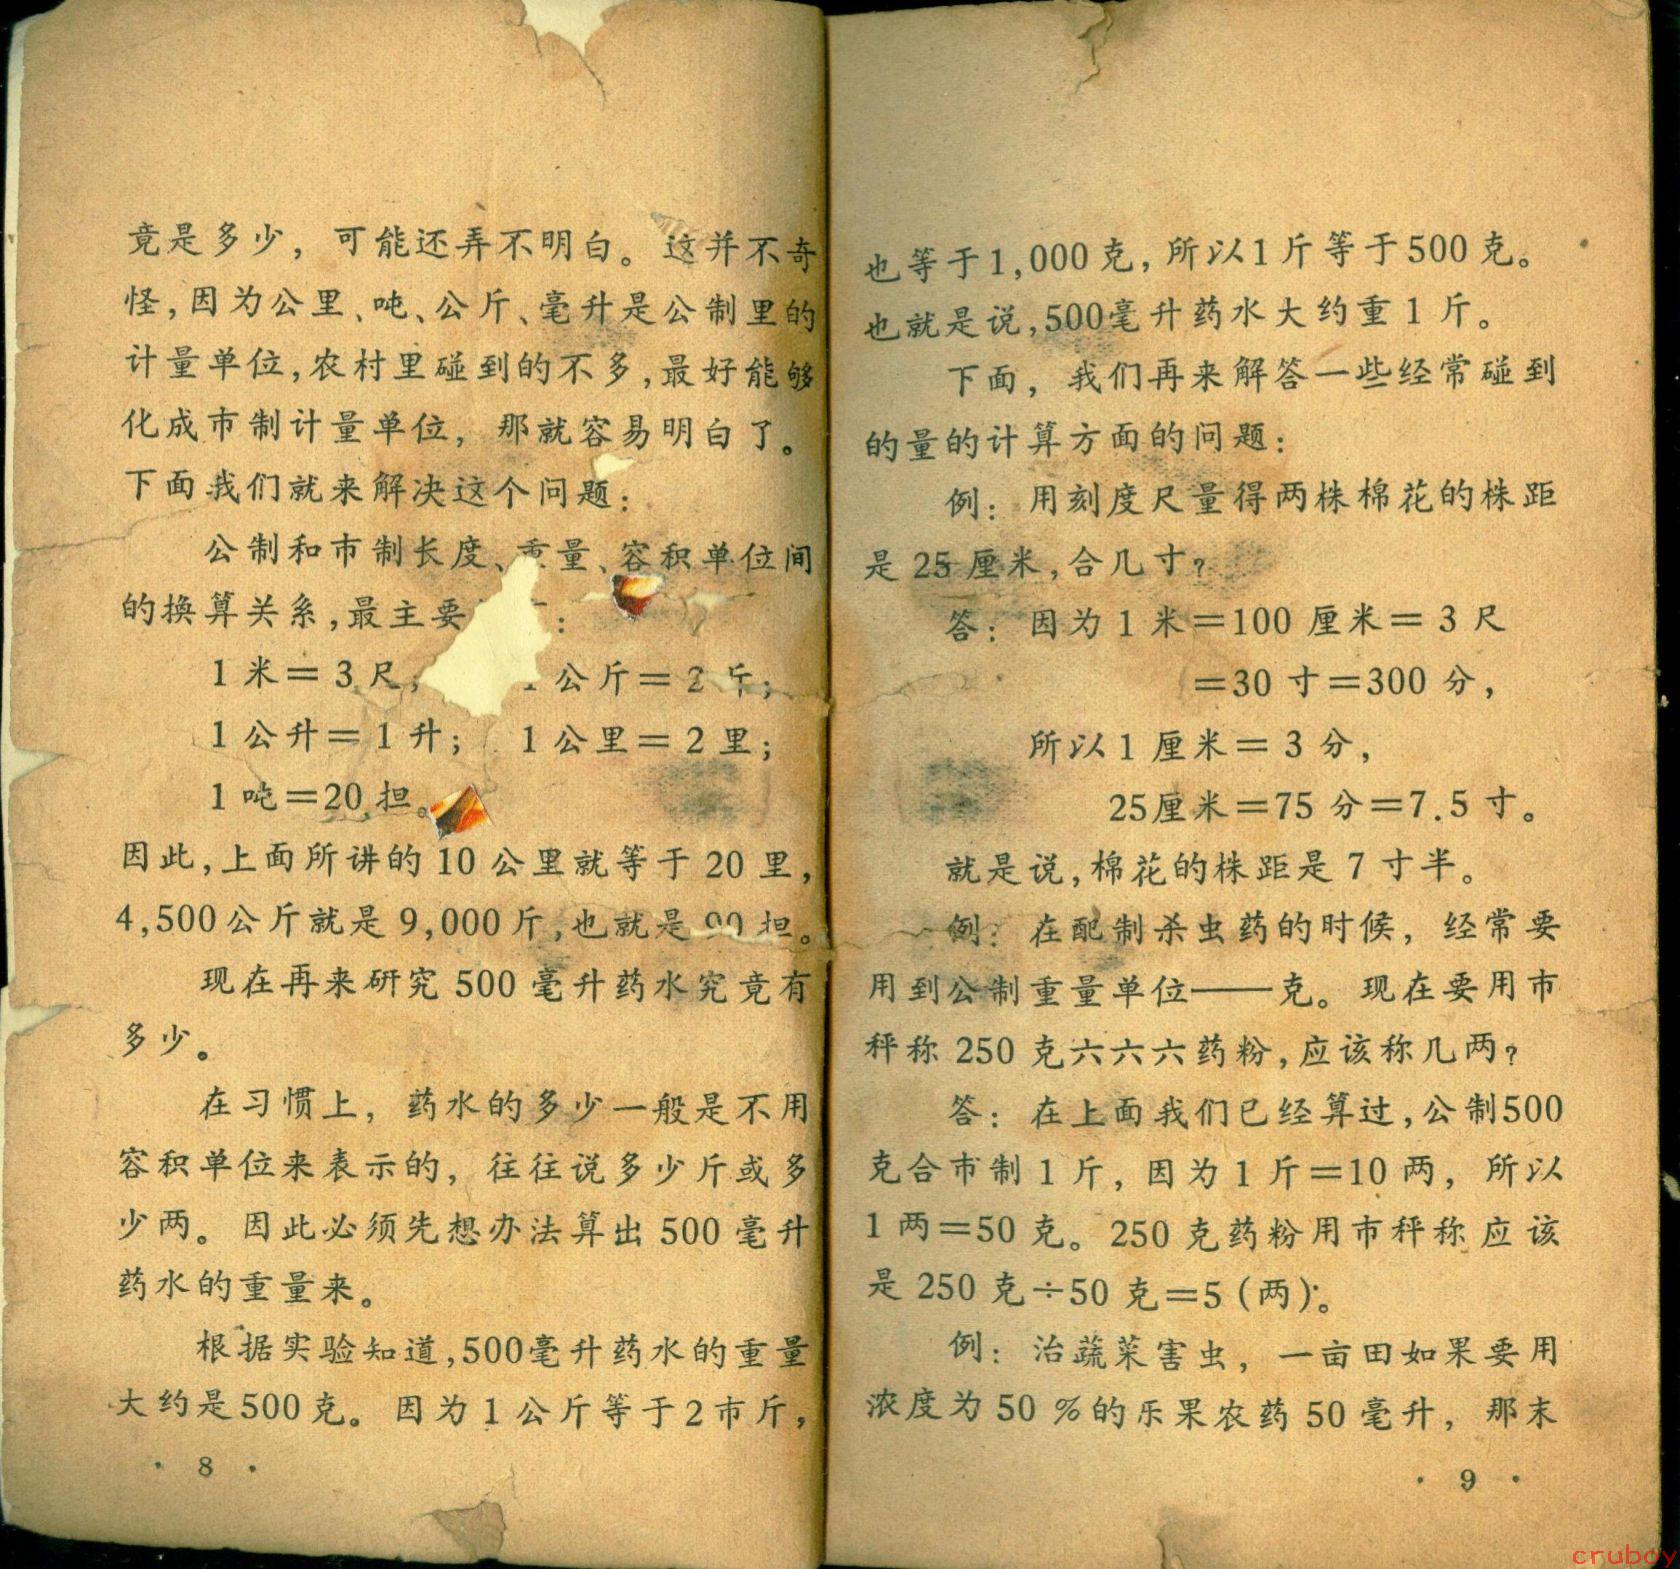 竟是多少，可能还弄不明白。这并不奇
怪，因为公里、吨、公斤、毫升是公制里的
计量单位，农村里碰到的不多，最好能够
化成市制计量单位，那就容易明白了。
下面我们就来解决这个问题：
公制和市制长度、重量、容积单位间
的换算关系，最主要：
1米＝3尺； 1公斤＝2斤；
1公升＝1升； 1公里＝2里；
1吨＝20担。
因此，上面所讲的10公里就等于20里，
4,500公斤就是9,000斤，也就是90担。
现在再来研究500毫升药水究竟有
多少。
在习惯上，药水的多少一般是不用
容积单位来表示的，往往说多少斤或多
少两。因此必须先想办法算出500毫升
药水的重量来。
根据实验知道，500毫升药水的重量
大约是500克。因为1公斤等于2市斤，
· 8 ·
也等于1,000克，所以1斤等于500克。
也就是说，500毫升药水大约重1斤。
下面，我们再来解答一些经常碰到
的量的计算方面的问题：
例：用刻度尺量得两株棉花的株距
是25厘米，合几寸？
答：因为1米＝100厘米＝3尺
＝30寸＝300分，
所以1厘米＝3分，
25厘米＝75分＝7.5寸。
就是说，棉花的株距是7寸半。
例：在配制杀虫药的时候，经常要
用到公制重量单位——克。现在要用市
秤称250克六六六药粉，应该称几两？
答：在上面我们已经算过，公制500
克合市制1斤，因为1斤＝10两，所以
1两＝50克。250克药粉用市秤称应该
是250克÷50克＝5（两）。
例：治蔬菜害虫，一亩田如果要用
浓度为50％的乐果农药50毫升，那末
· 9 ·
cruboy